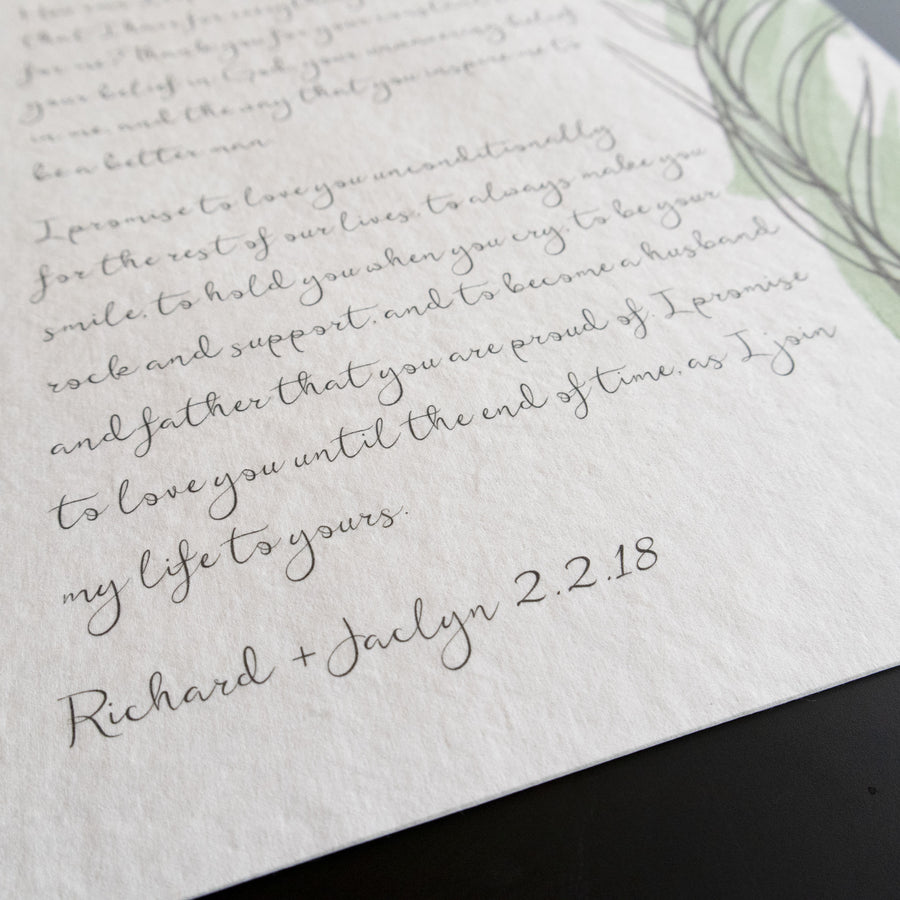 that I
for me. Thank you for your
your belief in God, your unwavering belief
in me and the way that you inspire me to
be a better man.
I promise to love you unconditionally
for the rest of our lives, to always make you
smile, to hold you when you cry, to be your
rock and support, and to become a husband
and father that you are proud of. I promise
to love you until the end of time, as I join
my life to yours.
Richard + Jaclyn 2.2.18